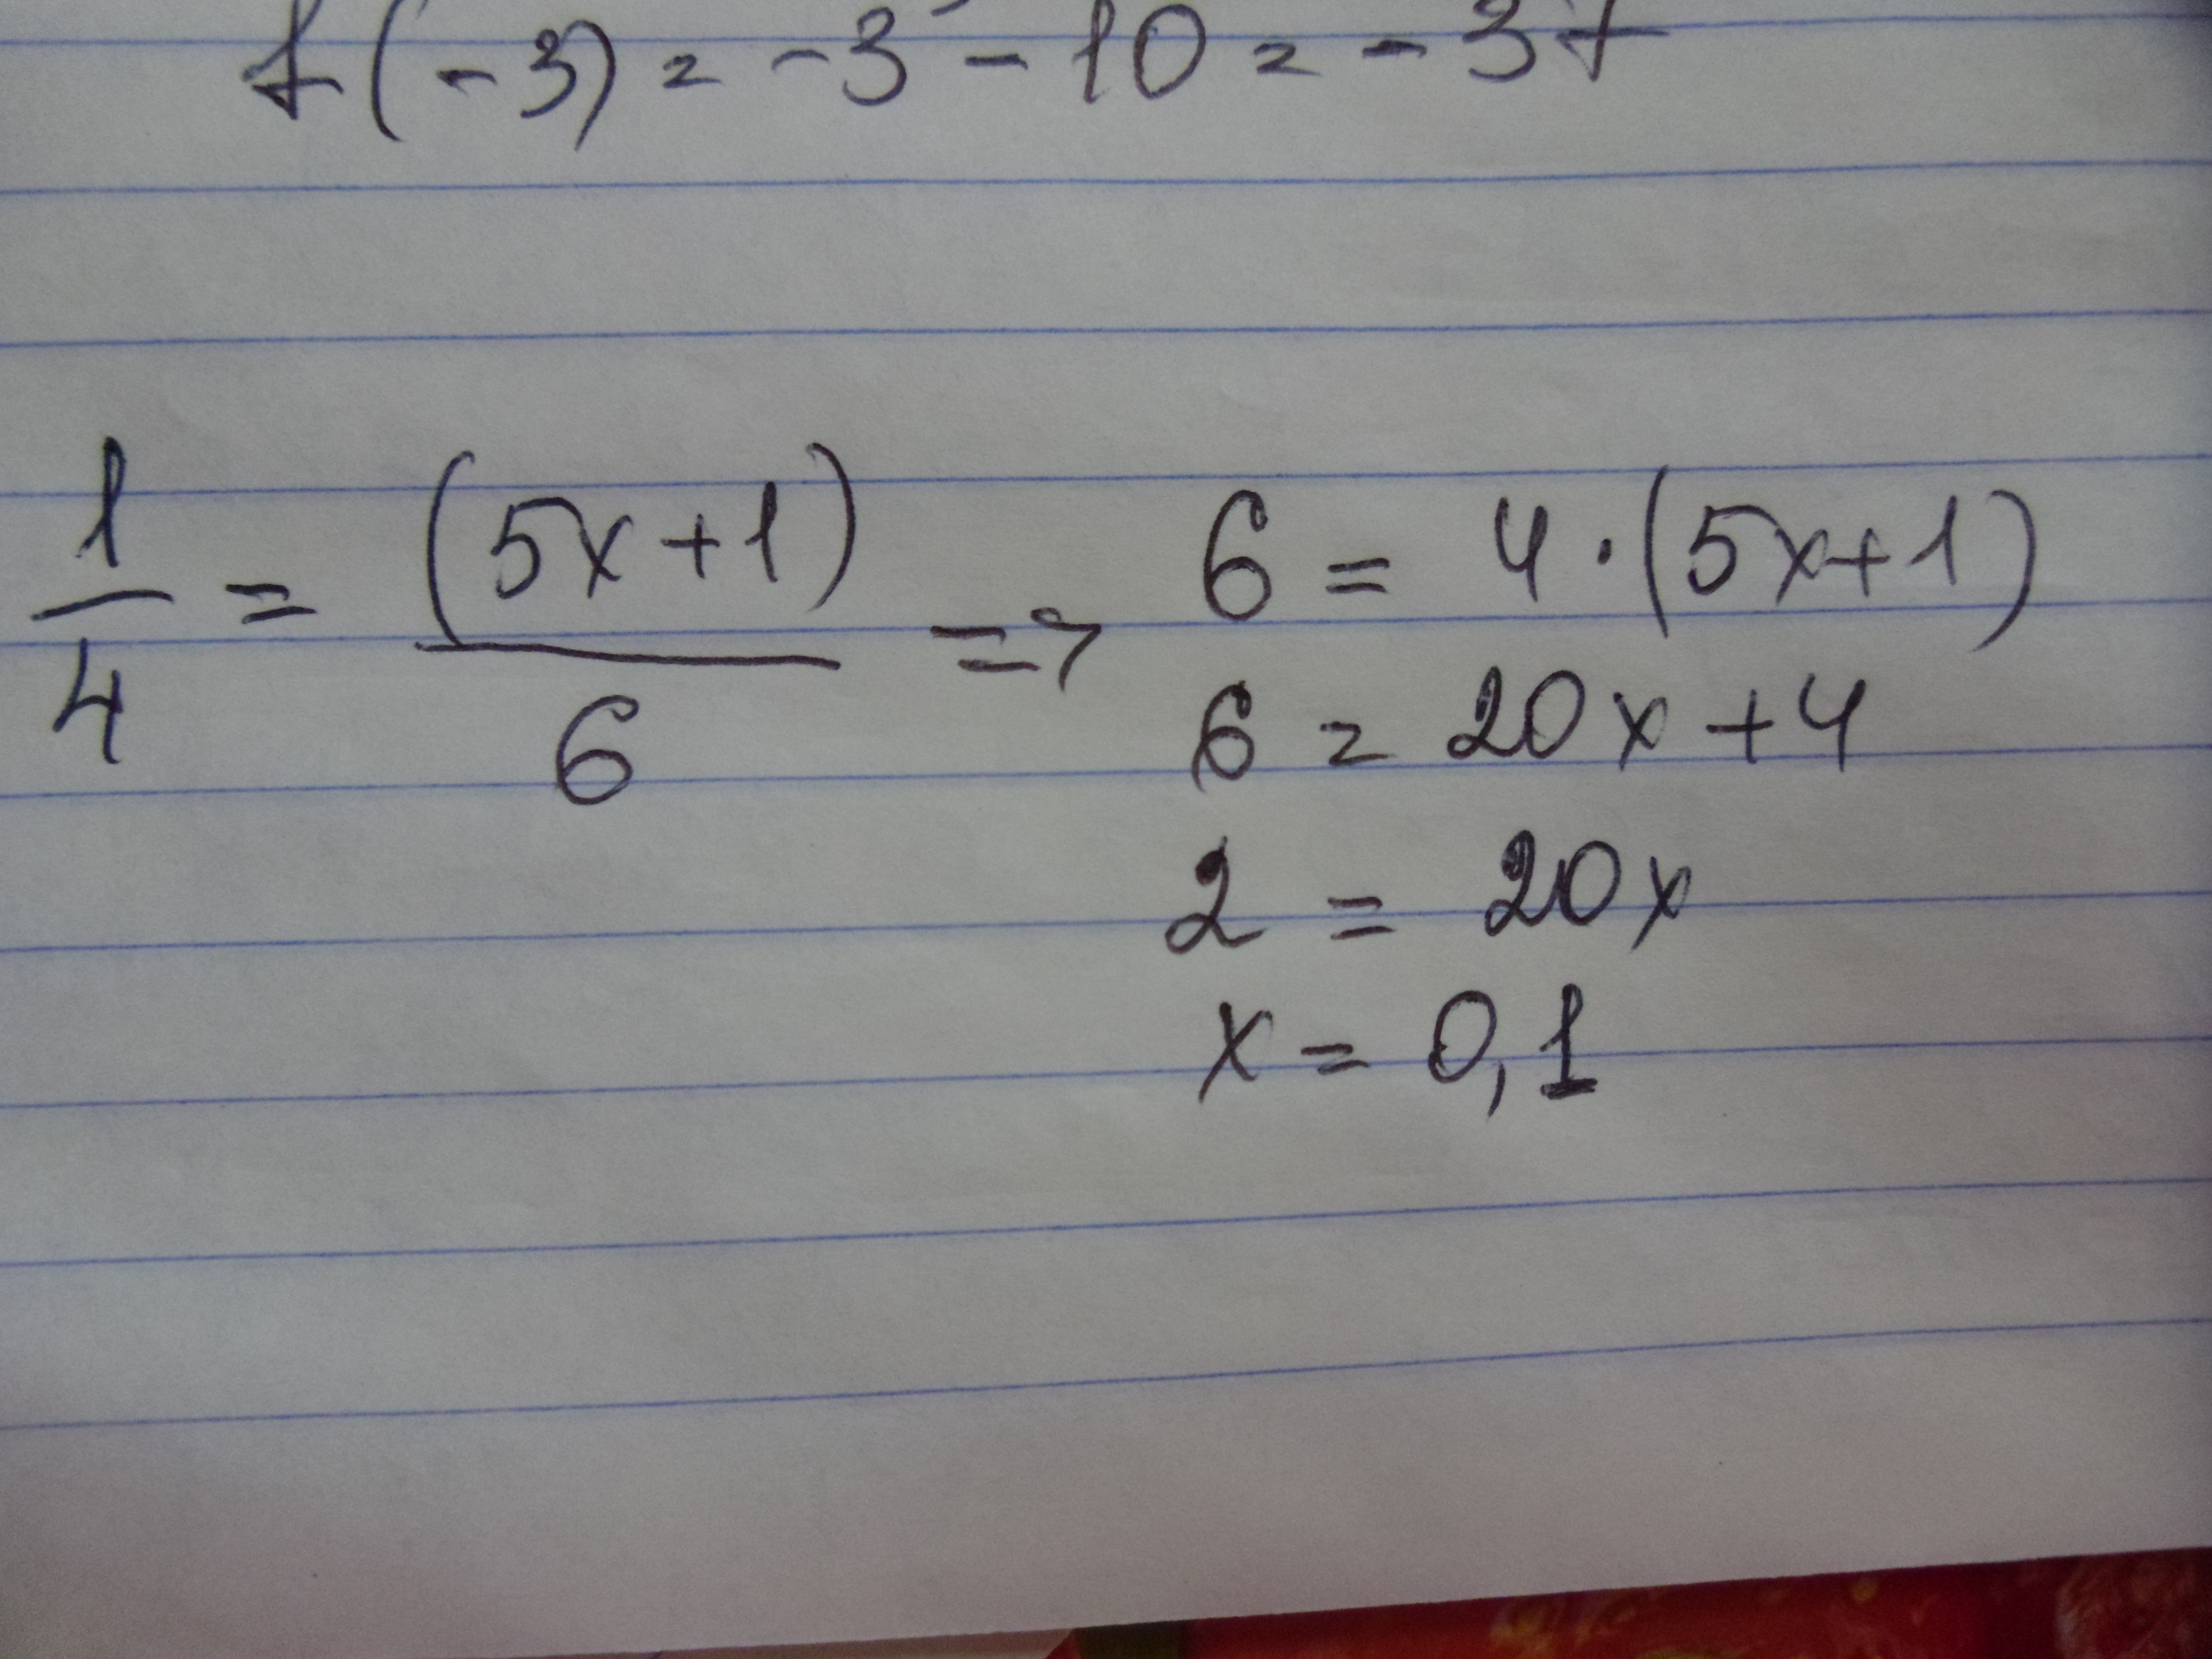 f(-3) = -3³ - 10 = -37
1/4 = (5x+1)/6 => 6 = 4·(5x+1)
6 = 20x+4
2 = 20x
x = 0,1